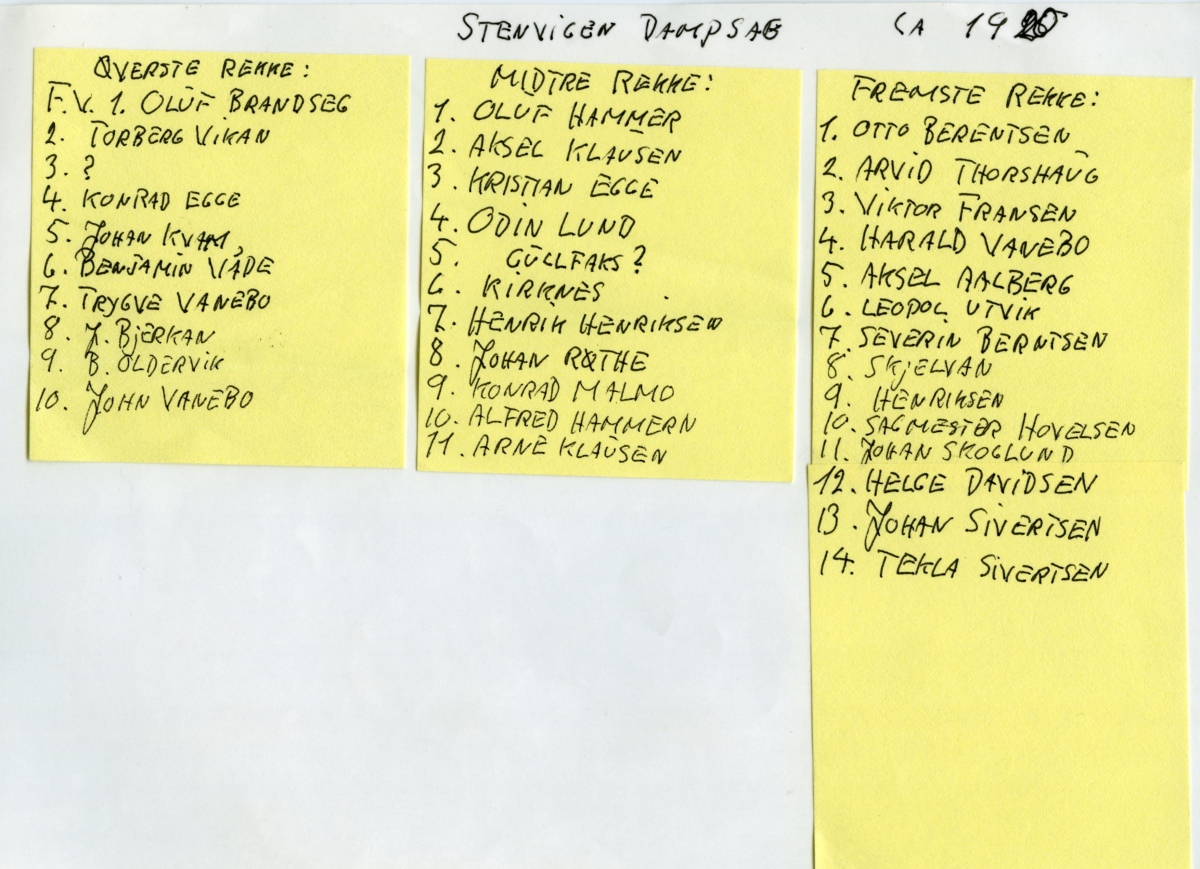 STENVIGEN DAMPSAG CA 1920
ØVERSTE REKKE:
F.V. 1. OLUF BRANDSEG
2. TORBERG VIKAN
3. ?
4. KONRAD EGGE
5. JOHAN KVAM
6. BENJAMIN VÅDE
7. TRYGVE VANEBO
8. J. BJERKAN
9. B. OLDERVIK
10. JOHN VANEBO
MIDTRE REKKE:
1. OLUF HAMMER
2. AKSEL KLAUSEN
3. KRISTIAN EGGE
4. ODIN LUND
5. GULLFAKS?
6. KIRKNES
7. HENRIK HENRIKSEN
8. JOHAN RØTHE
9. KONRAD MALMO
10. ALFRED HAMMERN
11. ARNE KLAUSEN
FREMSTE REKKE:
1. OTTO BERENTSEN
2. ARVID THORSHAUG
3. VIKTOR FRANSEN
4. HARALD VANEBO
5. AKSEL AALBERG
6. LEOPOL UTVIK
7. SEVERIN BERNTSEN
8. SKJELVAN
9. HENRIKSEN
10. SAGMESTER HOVELSEN
11. JOHAN SKOGLUND
12. HELGE DAVIDSEN
13. JOHAN SIVERTSEN
14. TEKLA SIVERTSEN